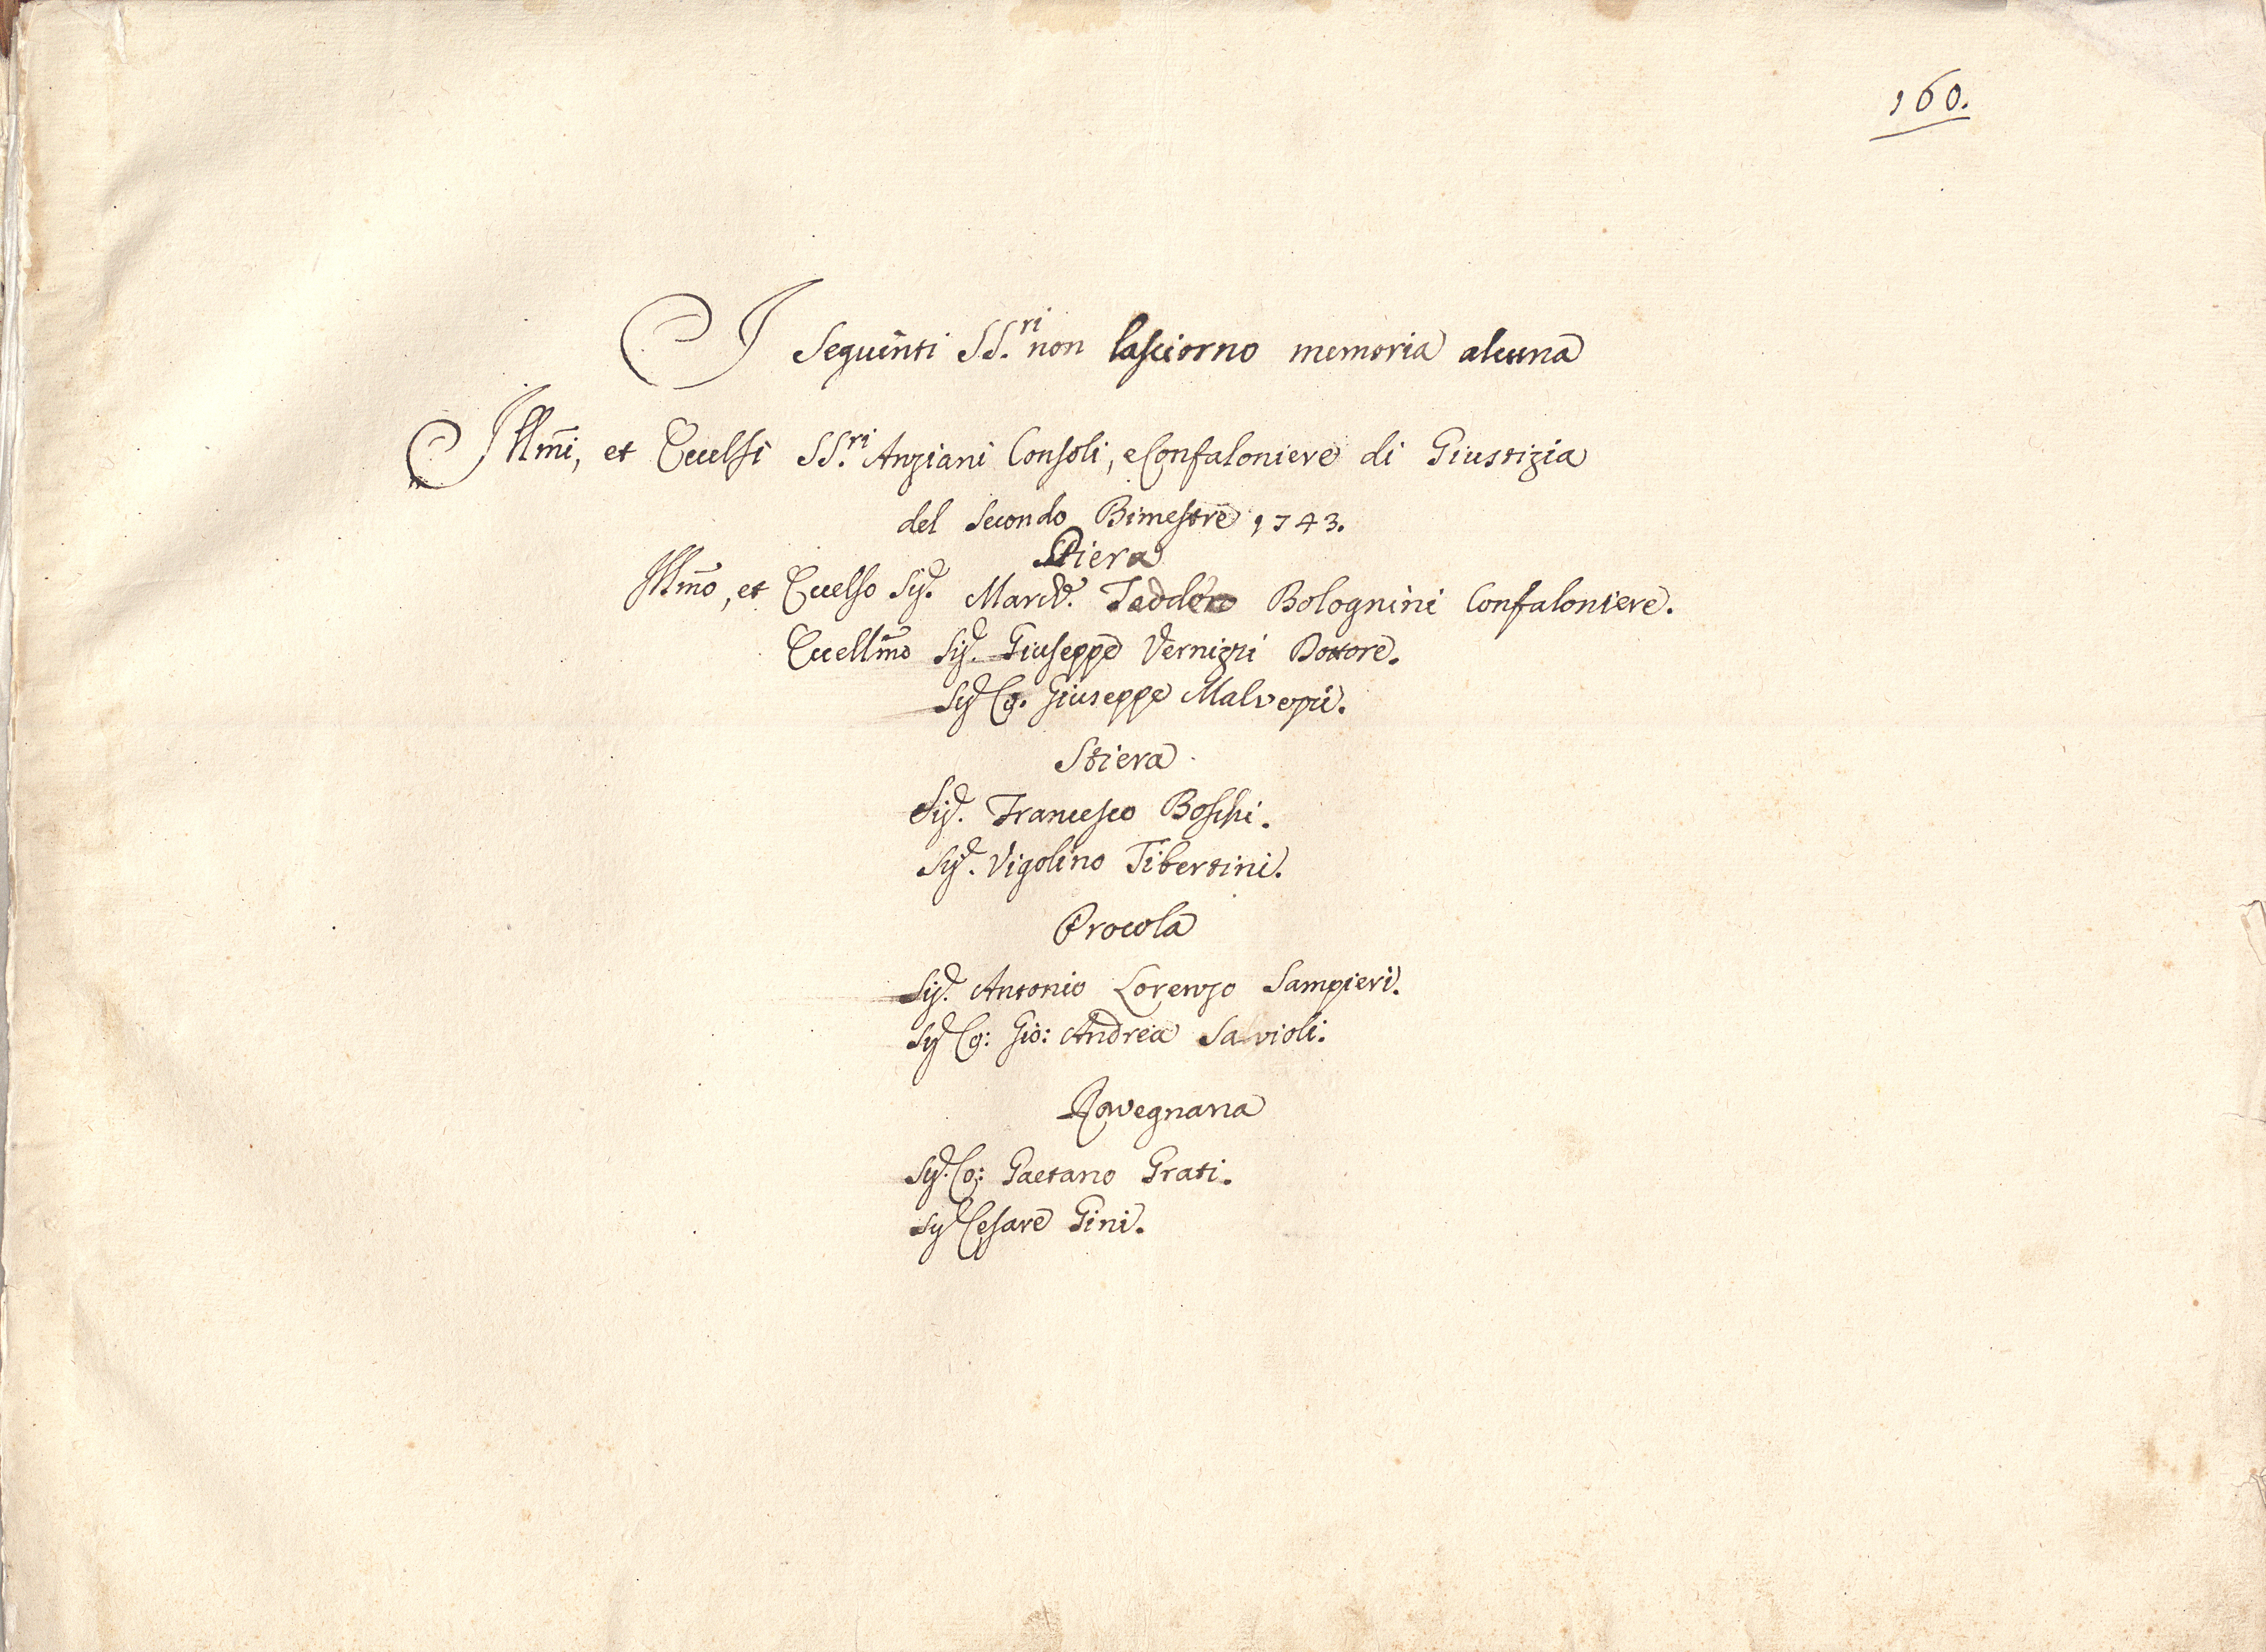 160.
I Seguenti SS.ri non lasciorno memoria alcuna
Illm̃i, et Eccelsi SS.ri Anziani Consoli, e Confaloniere di Giustizia
del Secondo Bimestre 1743.
Piera
Illm̃o, et Eccelso Sig.r March.e Teodoro Bolognini Confaloniere.
Eccellm̃o Sig.r Giuseppe Vernizzi Dottore.
Sig.r Co. Giuseppe Malvezzi.
Stiera
Sig.r Francesco Boschi.
Sig.r Vigolino Tibertini.
Procola
Sig.r Antonio Lorenzo Sampieri.
Sig.r Co: Gio: Andrea Savioli.
Ravegnana
Sig.r Co: Gaetano Grati.
Sig.r Cesare Gini.